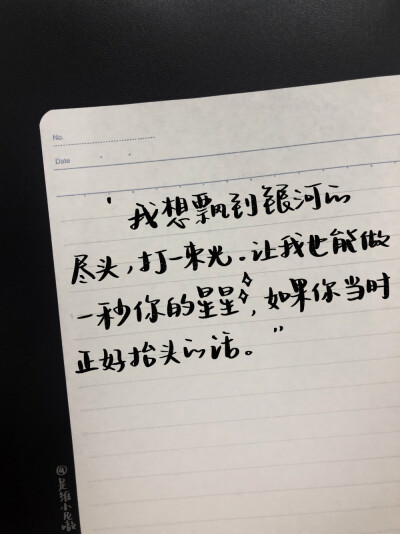 No.
Date
“我想飘到银河的
尽头，打一束光。让我也能做
一秒你的星星，如果你当时
正好抬头的话。”